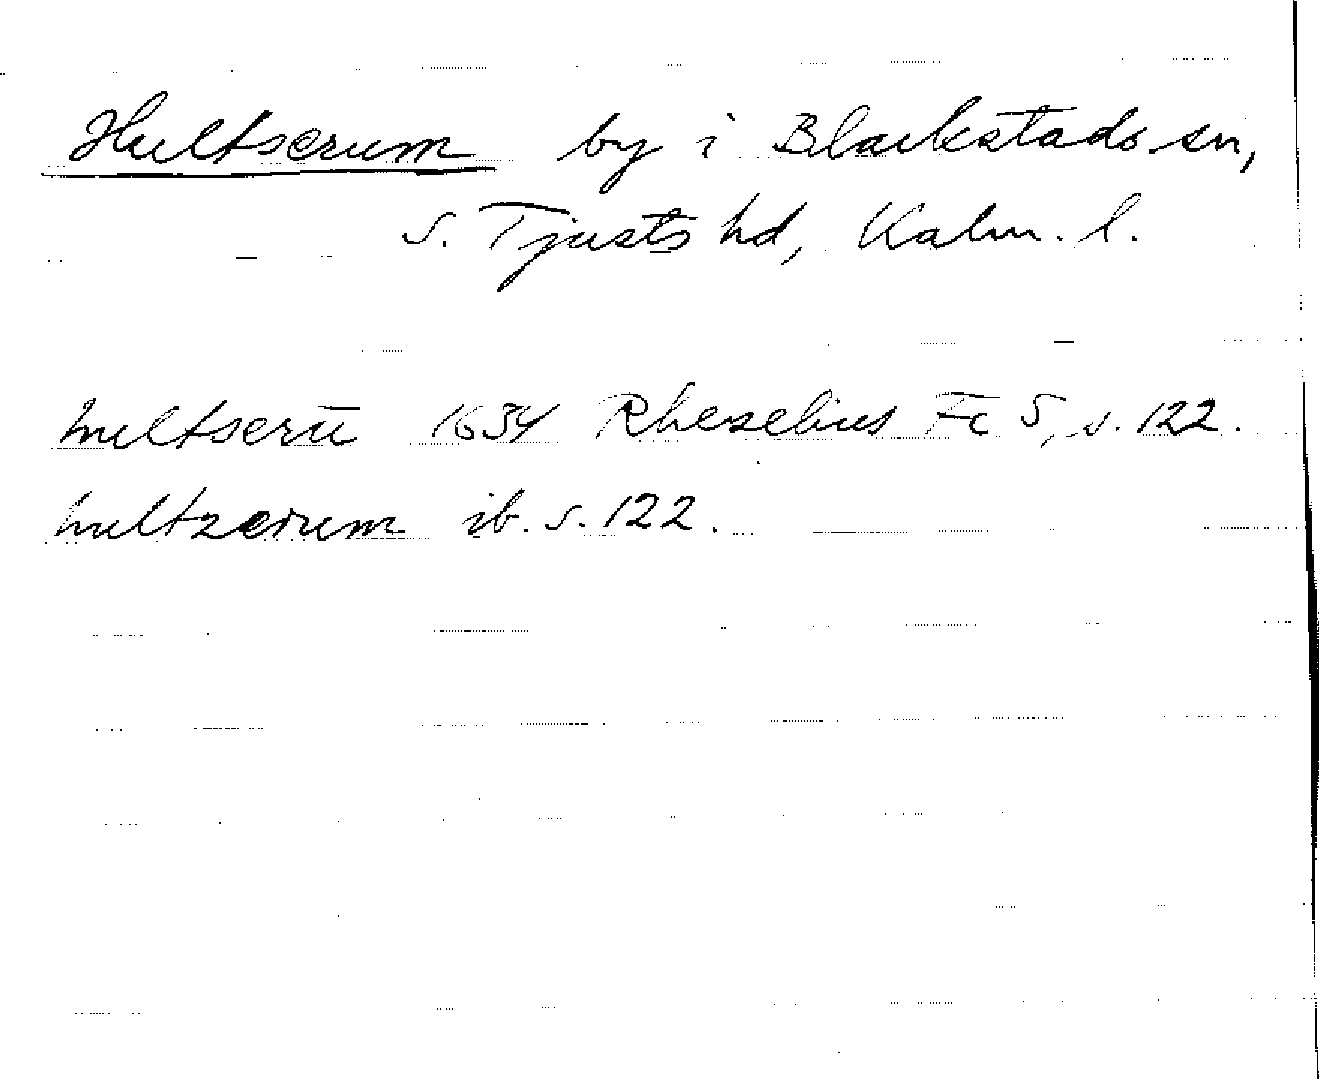 Hultserum by i Blackstads sn,
S. Tjusts hd, Kalm. l.
hultserū 1634 Rhezelius Fc 5, s. 122.
hultzerum ib. s. 122.